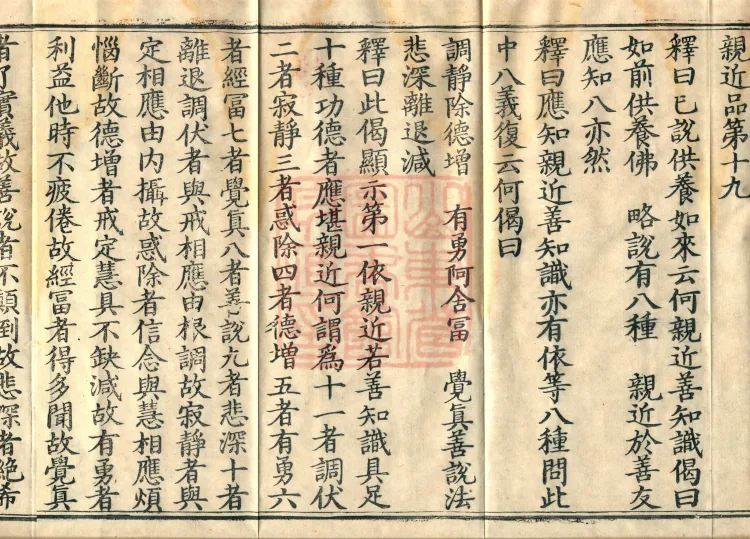 親近品第十九
釋曰已說供養如來云何親近善知識偈曰
如前供養佛　略說有八種　親近於善友
應知八亦然
釋曰應知親近善知識亦有依等八種問此
中八義復云何偈曰
調靜除德增　有勇阿含冨　覺眞善說法
悲深離退減
釋曰此偈顯示第一依親近若善知識具足
十種功德者應堪親近何謂爲十一者調伏
二者寂靜三者惑除四者德增五者有勇六
者經冨七者覺眞八者善說九者悲深十者
離退調伏者與戒相應由根調故寂靜者與
定相應由內攝故惑除者信念與慧相應煩
惱斷故德增者戒定慧具不缺減故有勇者
利益他時不疲倦故經冨者得多聞故覺眞
者了實義故善說者不顛到故悲深者絶希